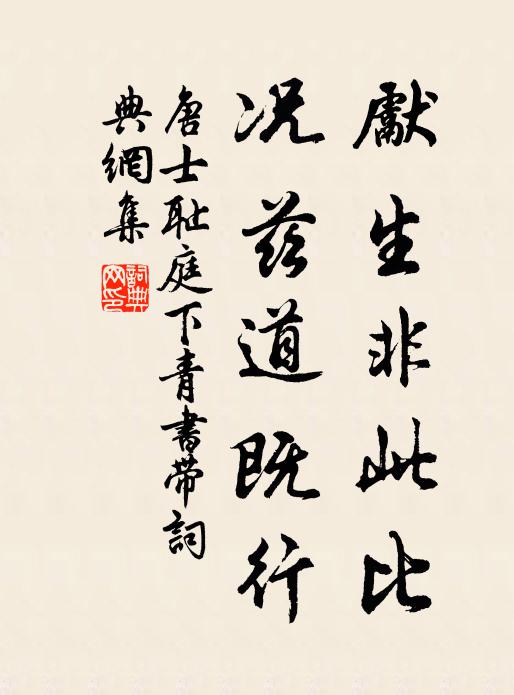 獻生非此比
况茲道既行
唐士耻庭下青書帶詞
典網集
詞典
網印